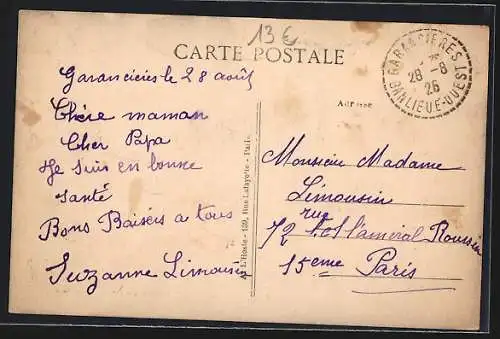 13 €
CARTE POSTALE
GARANCIERES
28 - 8
26
BANLIEUE-OUEST
Garancieres le 28 août
Chère maman
Cher Papa
Je suis en bonne
santé
Bons Baisers a tous
Suzanne Limousin
A. L'Hoste - 139, Rue Lafayette - Paris
Adresse
Monsieur Madame
Limousin
rue
72 de l'amiral Roussin
15eme Paris